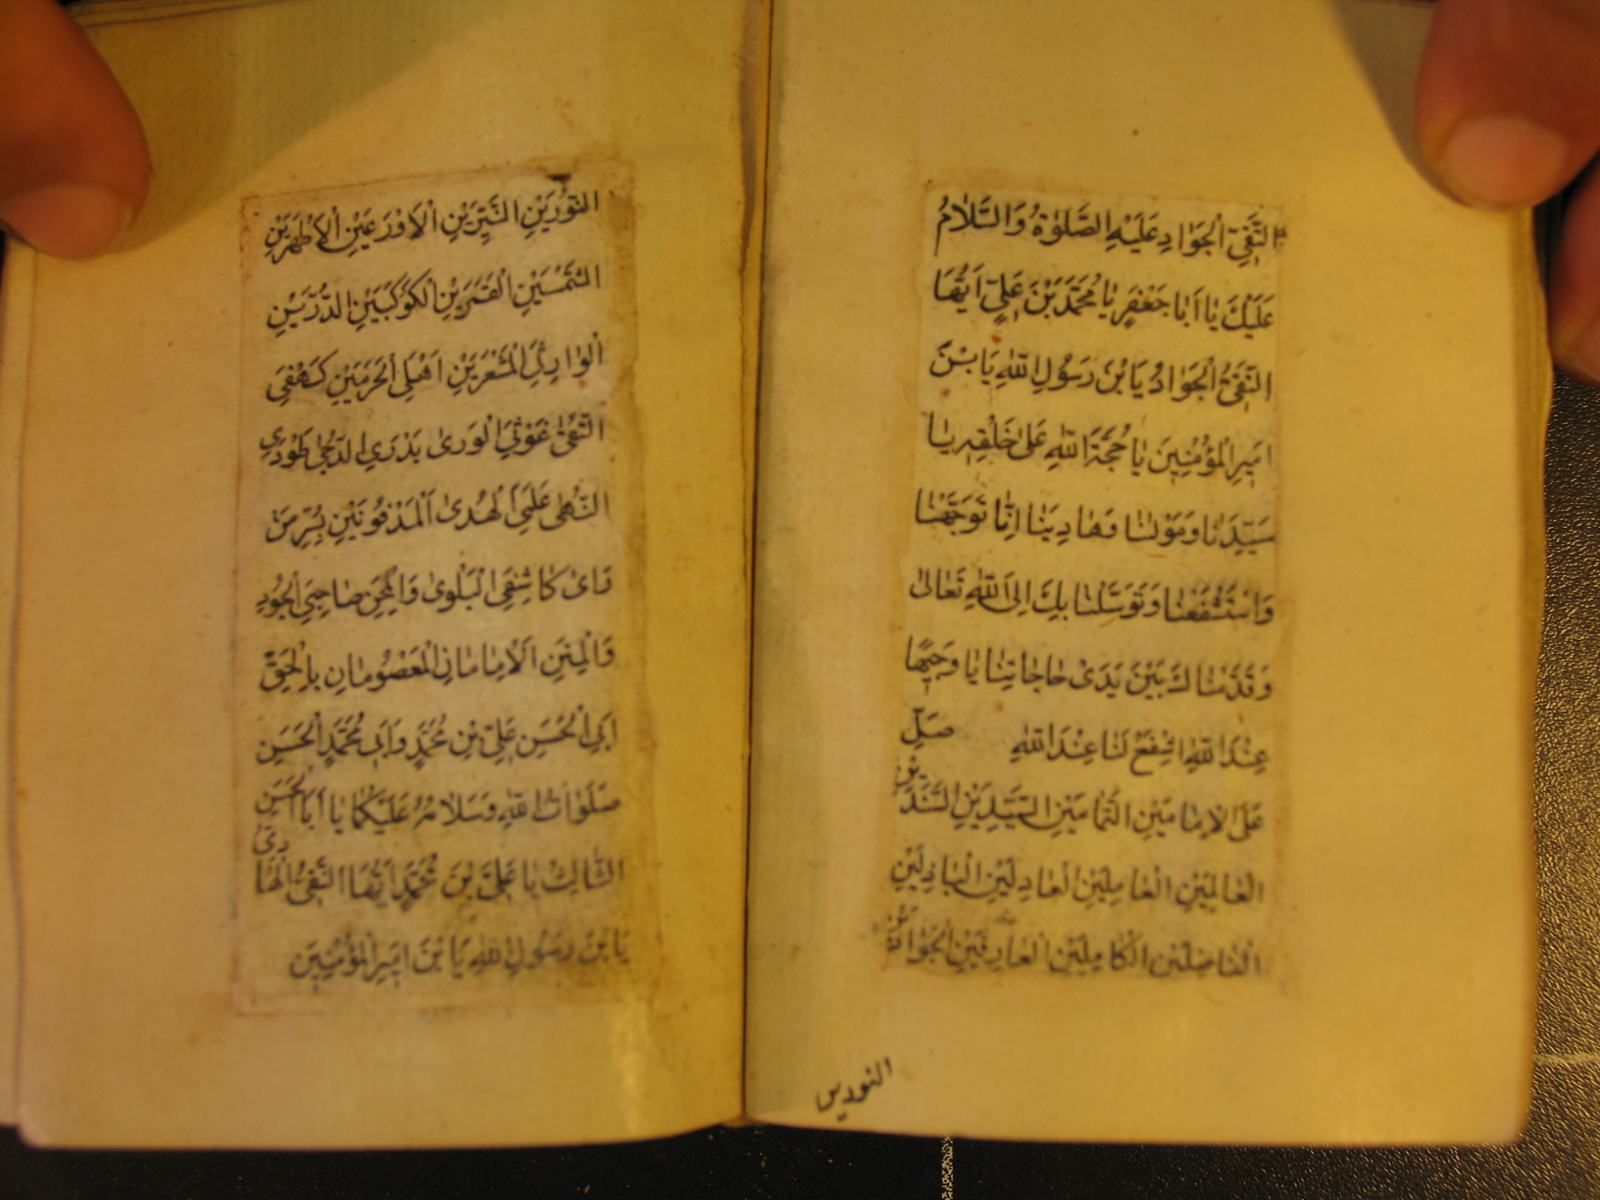 التَّقِيِّ الْجَوَادِ عَلَيْهِ الصَّلٰوةُ وَالسَّلَامُ
عَلَيْكَ يَا اَبَا جَعْفَرٍ يَا مُحَمَّدَ بْنَ عَلِيٍّ اَيُّهَا
التَّقِيُّ الْجَوَادُ يَا بْنَ رَسُولِ اللهِ يَا بْنَ
اَمِيرِ الْمُؤْمِنِينَ يَا حُجَّةَ اللهِ عَلٰى خَلْقِهِ يَا
سَيِّدَنَا وَمَوْلٰنَا وَهَادِينَا اِنَّا تَوَجَّهْنَا
وَاسْتَشْفَعْنَا وَتَوَسَّلْنَا بِكَ اِلَى اللهِ تَعَالٰى
وَقَدَّمْنَاكَ بَيْنَ يَدَىْ حَاجَاتِنَا يَا وَجِيهًا
عِنْدَ اللهِ اشْفَعْ لَنَا عِنْدَ اللهِ صَلِّ
عَلَى الْاِمَامَيْنِ الْهُمَامَيْنِ السَّيِّدَيْنِ السَّنَدَيْنِ
الْعَالِمَيْنِ الْعَامِلَيْنِ الْعَادِلَيْنِ الْبَاذِلَيْنِ
الْفَاضِلَيْنِ الْكَامِلَيْنِ الْعَارِفَيْنِ الْجَوَادَيْنِ
النورين
النُّورَيْنِ النَّيِّرَيْنِ الْاَوْرَعَيْنِ الْاَطْهَرَيْنِ
الشَّمْسَيْنِ الْقَمَرَيْنِ الْكَوْكَبَيْنِ الدُّرِّيَّيْنِ
الْوَارِثَيِ الْمَشْعَرَيْنِ اَهْلَىِ الْحَرَمَيْنِ كَهْفَىِ
التُّقٰى غَوْثَيِ الْوَرٰى بَدْرَيِ الدُّجٰى طَوْدَيِ
النُّهٰى عَلَمَيِ الْهُدٰى اَلْمَدْفُونَيْنِ بِسُرَّ مَنْ
رَاٰى كَاشِفَيِ الْبَلْوٰى وَالْمِحَنِ صَاحِبَيِ الْجُودِ
وَالْمِنَنِ اَلْاِمَامَانِ الْمَعْصُومَانِ بِالْحَقِّ
اَبِي الْحَسَنِ عَلِيِّ بْنِ مُحَمَّدٍ وَاَبِي مُحَمَّدٍ الْحَسَنِ
صَلَوَاتُ اللهِ وَسَلَامُهُ عَلَيْكُمَا يَا اَبَا الْحَسَنِ
الثَّالِثِ يَا عَلِيَّ بْنَ مُحَمَّدٍ اَيُّهَا النَّقِيُّ الْهَادِى
يَا بْنَ رَسُولِ اللهِ يَا بْنَ اَمِيرِ الْمُؤْمِنِينَ